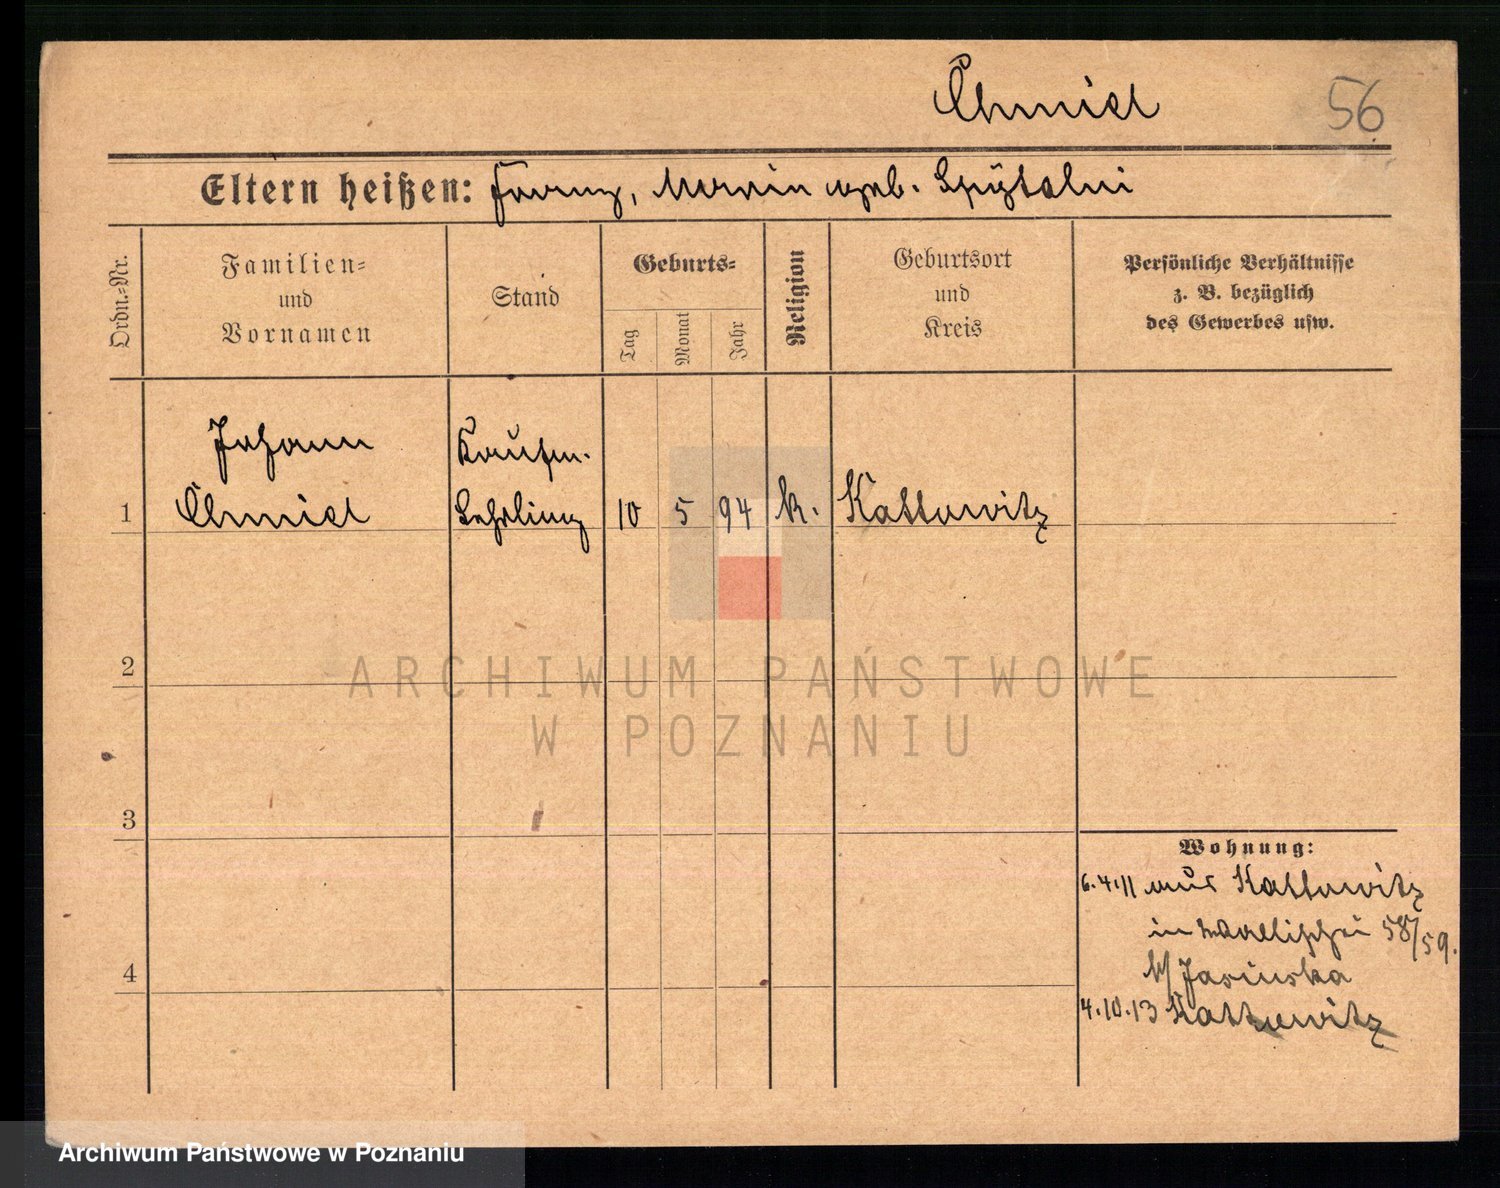 Chmiel
56
Eltern heißen: Franz, Marie geb. Spÿtalni
Ordn.-Nr.
Familien-
und
Vornamen
Stand
Geburts-
Tag
Monat
Jahr
Religion
Geburtsort
und
Kreis
Persönliche Verhältnisse
z. B. bezüglich
des Gewerbes usw.
Johann
Kaufm.
1 Chmiel Lehrling 10 5 94 k. Kattowitz
2
ARCHIWUM PAŃSTWOWE
W POZNANIU
3
Wohnung:
6.4.11 aus Kattowitz
in Wallischei 58/59.
b/ Jasinska
4
4.10.13 Kattowitz
Archiwum Państwowe w Poznaniu